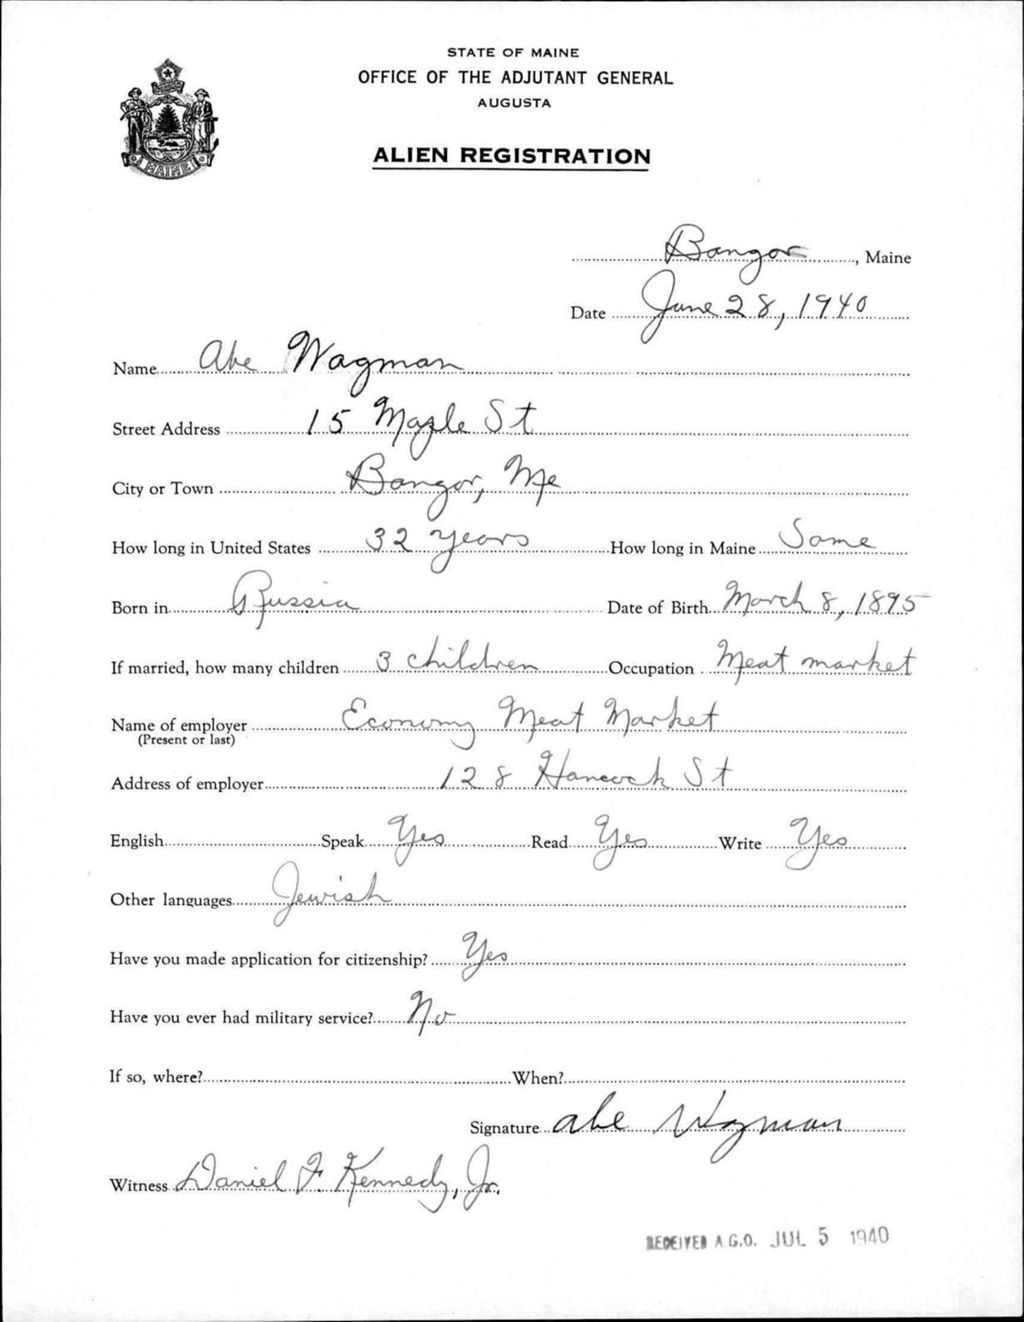 STATE OF MAINE
OFFICE OF THE ADJUTANT GENERAL
AUGUSTA
ALIEN REGISTRATION
MAINE
Bangor, Maine
Date June 28, 1940
Name Abe Wagman
Street Address 15 Maple St
City or Town Bangor, Me
How long in United States 32 years How long in Maine Same
Born in Russia Date of Birth March 8, 1895
If married, how many children 3 children Occupation Meat market
Name of employer Economy Meat Market
(Present or last)
Address of employer 128 Hancock St
English Speak Yes Read Yes Write Yes
Other languages Jewish
Have you made application for citizenship? Yes
Have you ever had military service? No
If so, where? When?
Signature Abe Wagman
Witness Daniel F. Kennedy, Jr.
RECEIVED A.G.O. JUL 5 1940